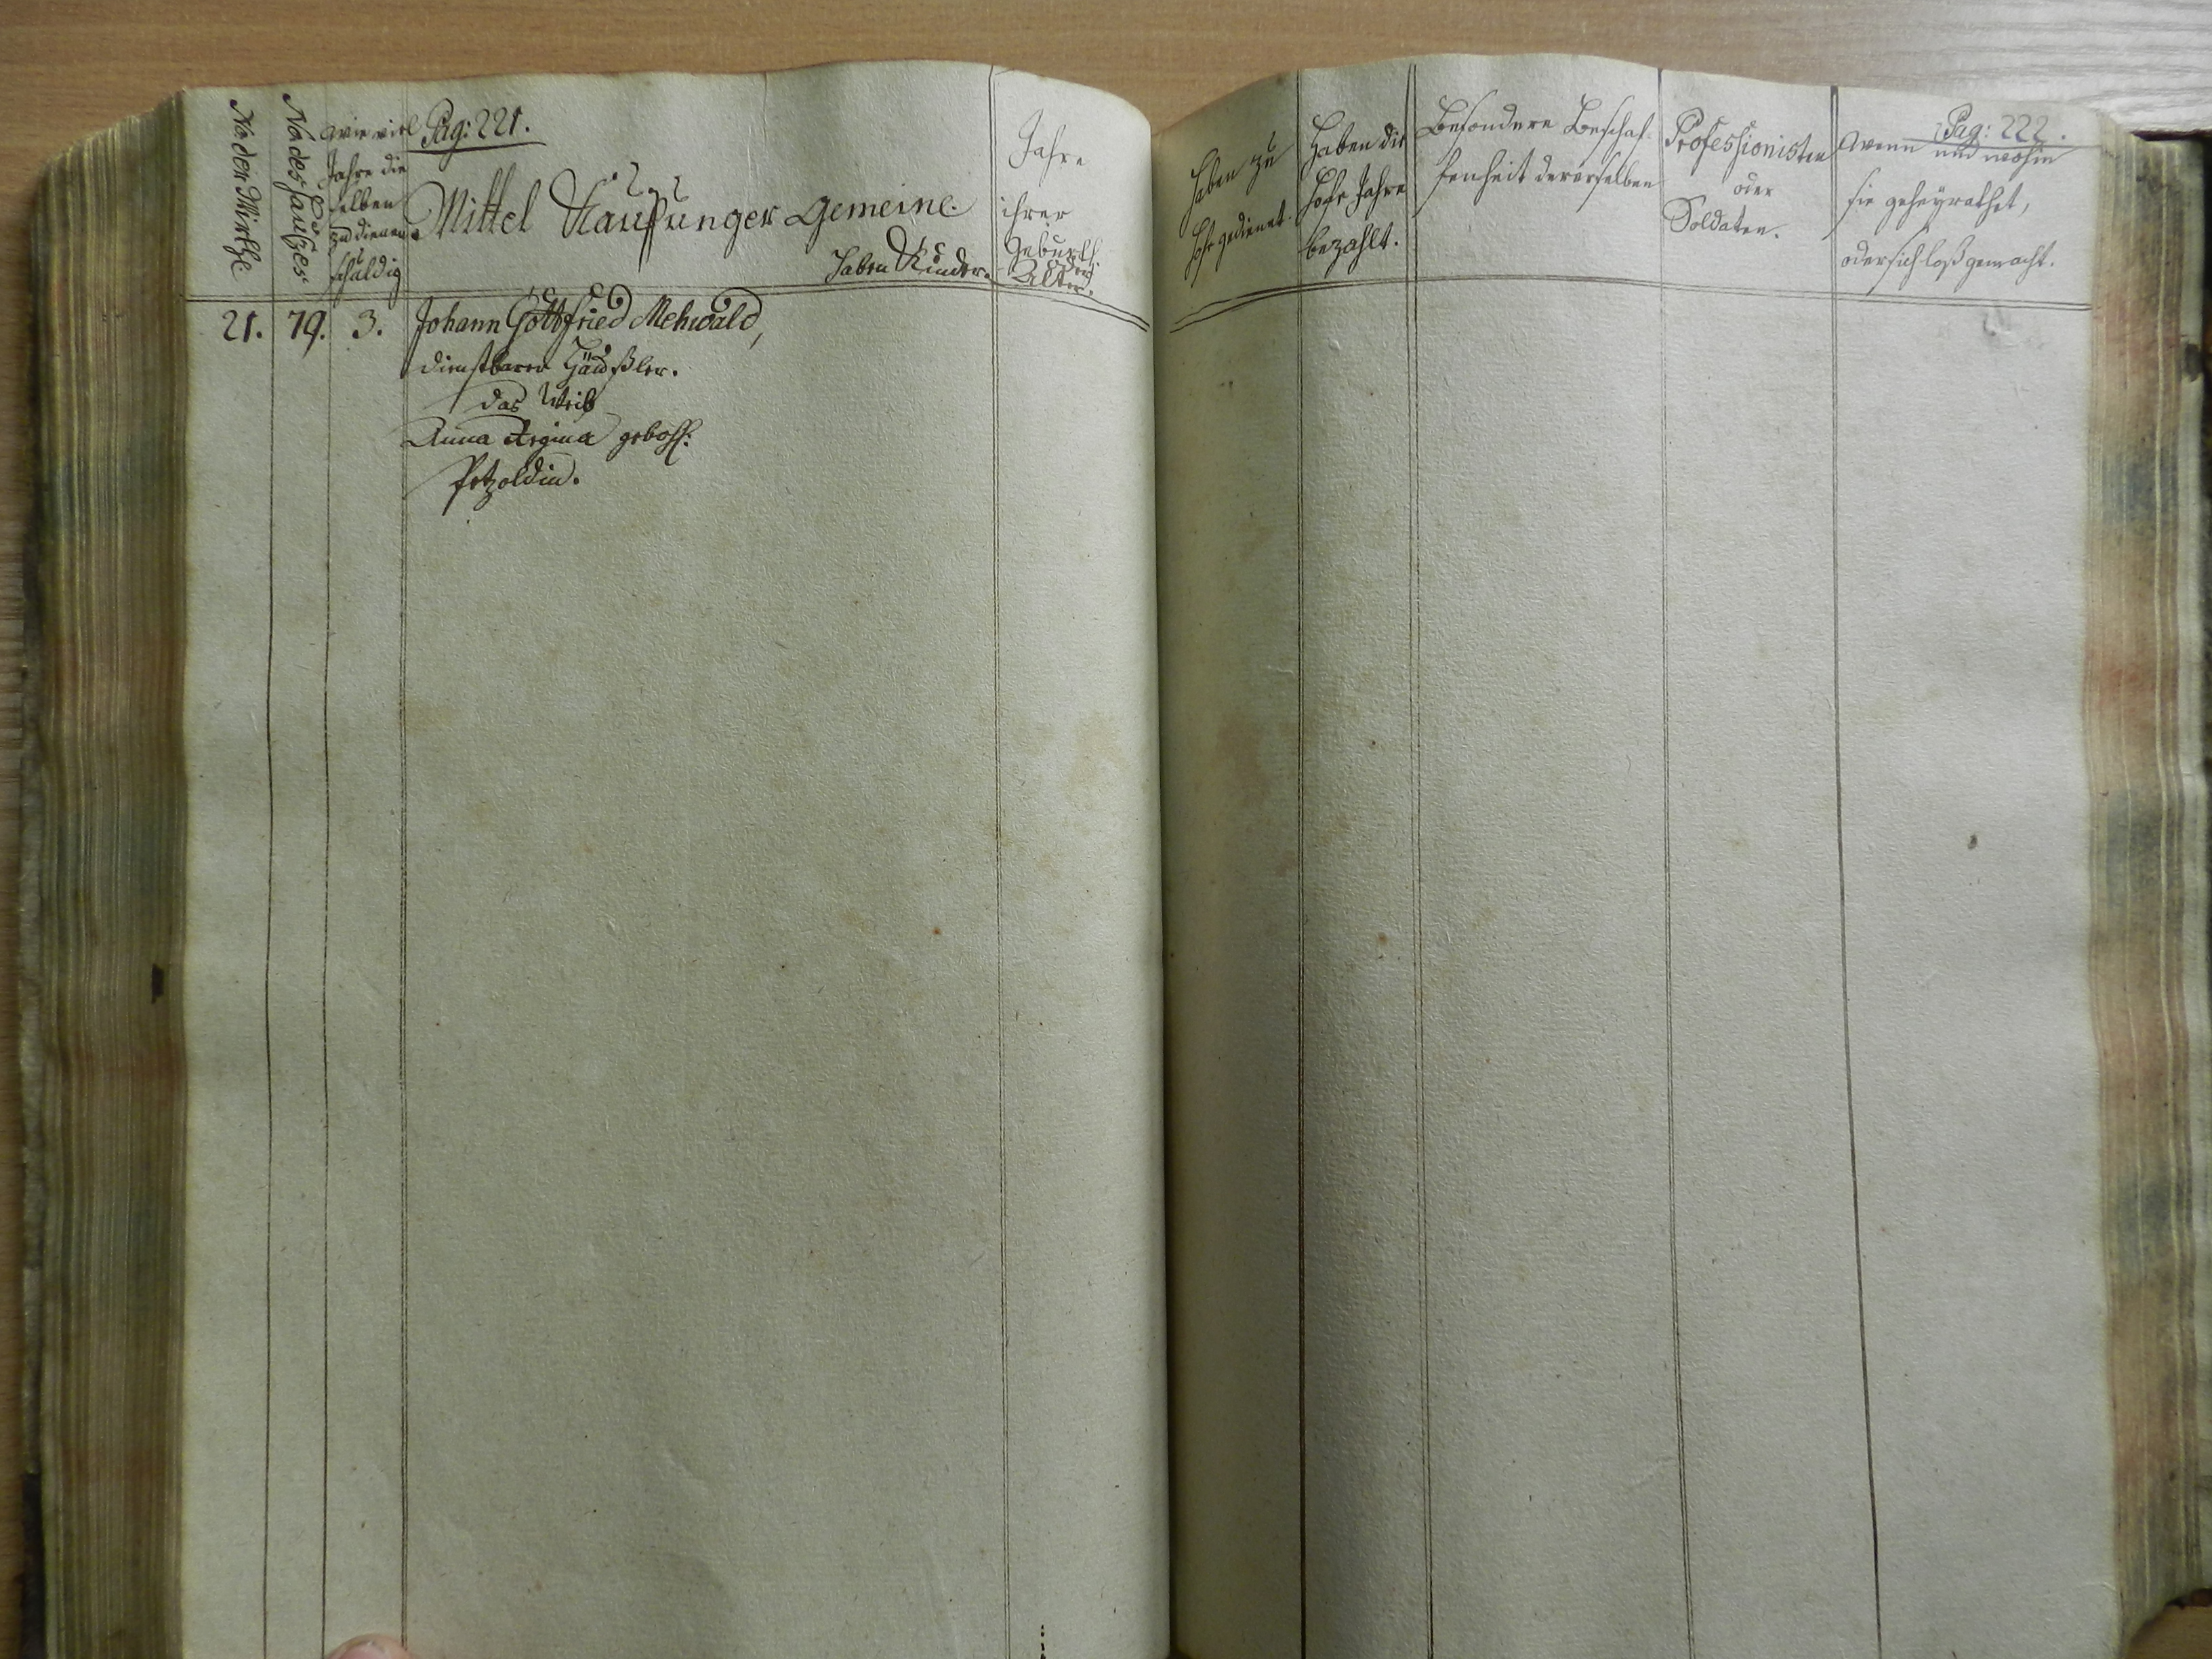 No der Wirthe
No des Haußes.
wie viel
Jahre die
selben
zu dienen
schuldig
Pag: 221.
Mittel Kauffunger Gemeine.
Haben Kinder.
Jahre
ihrer
Geburth
oder
Alter.
21. 79. 3. Johann Gottfried Mehwald,
dienstbarer Häußler.
das Weib
Anna Regina gebohr:
Petzoldin.
Pag: 222.
Haben zu
Hofe gedienet.
Haben die
Hofe Jahre
bezahlt.
Besondere Beschaf-
fenheit dererselben
Professionisten
oder
Soldaten.
wenn und wohin
sie geheyrathet,
oder sich loß gemacht.